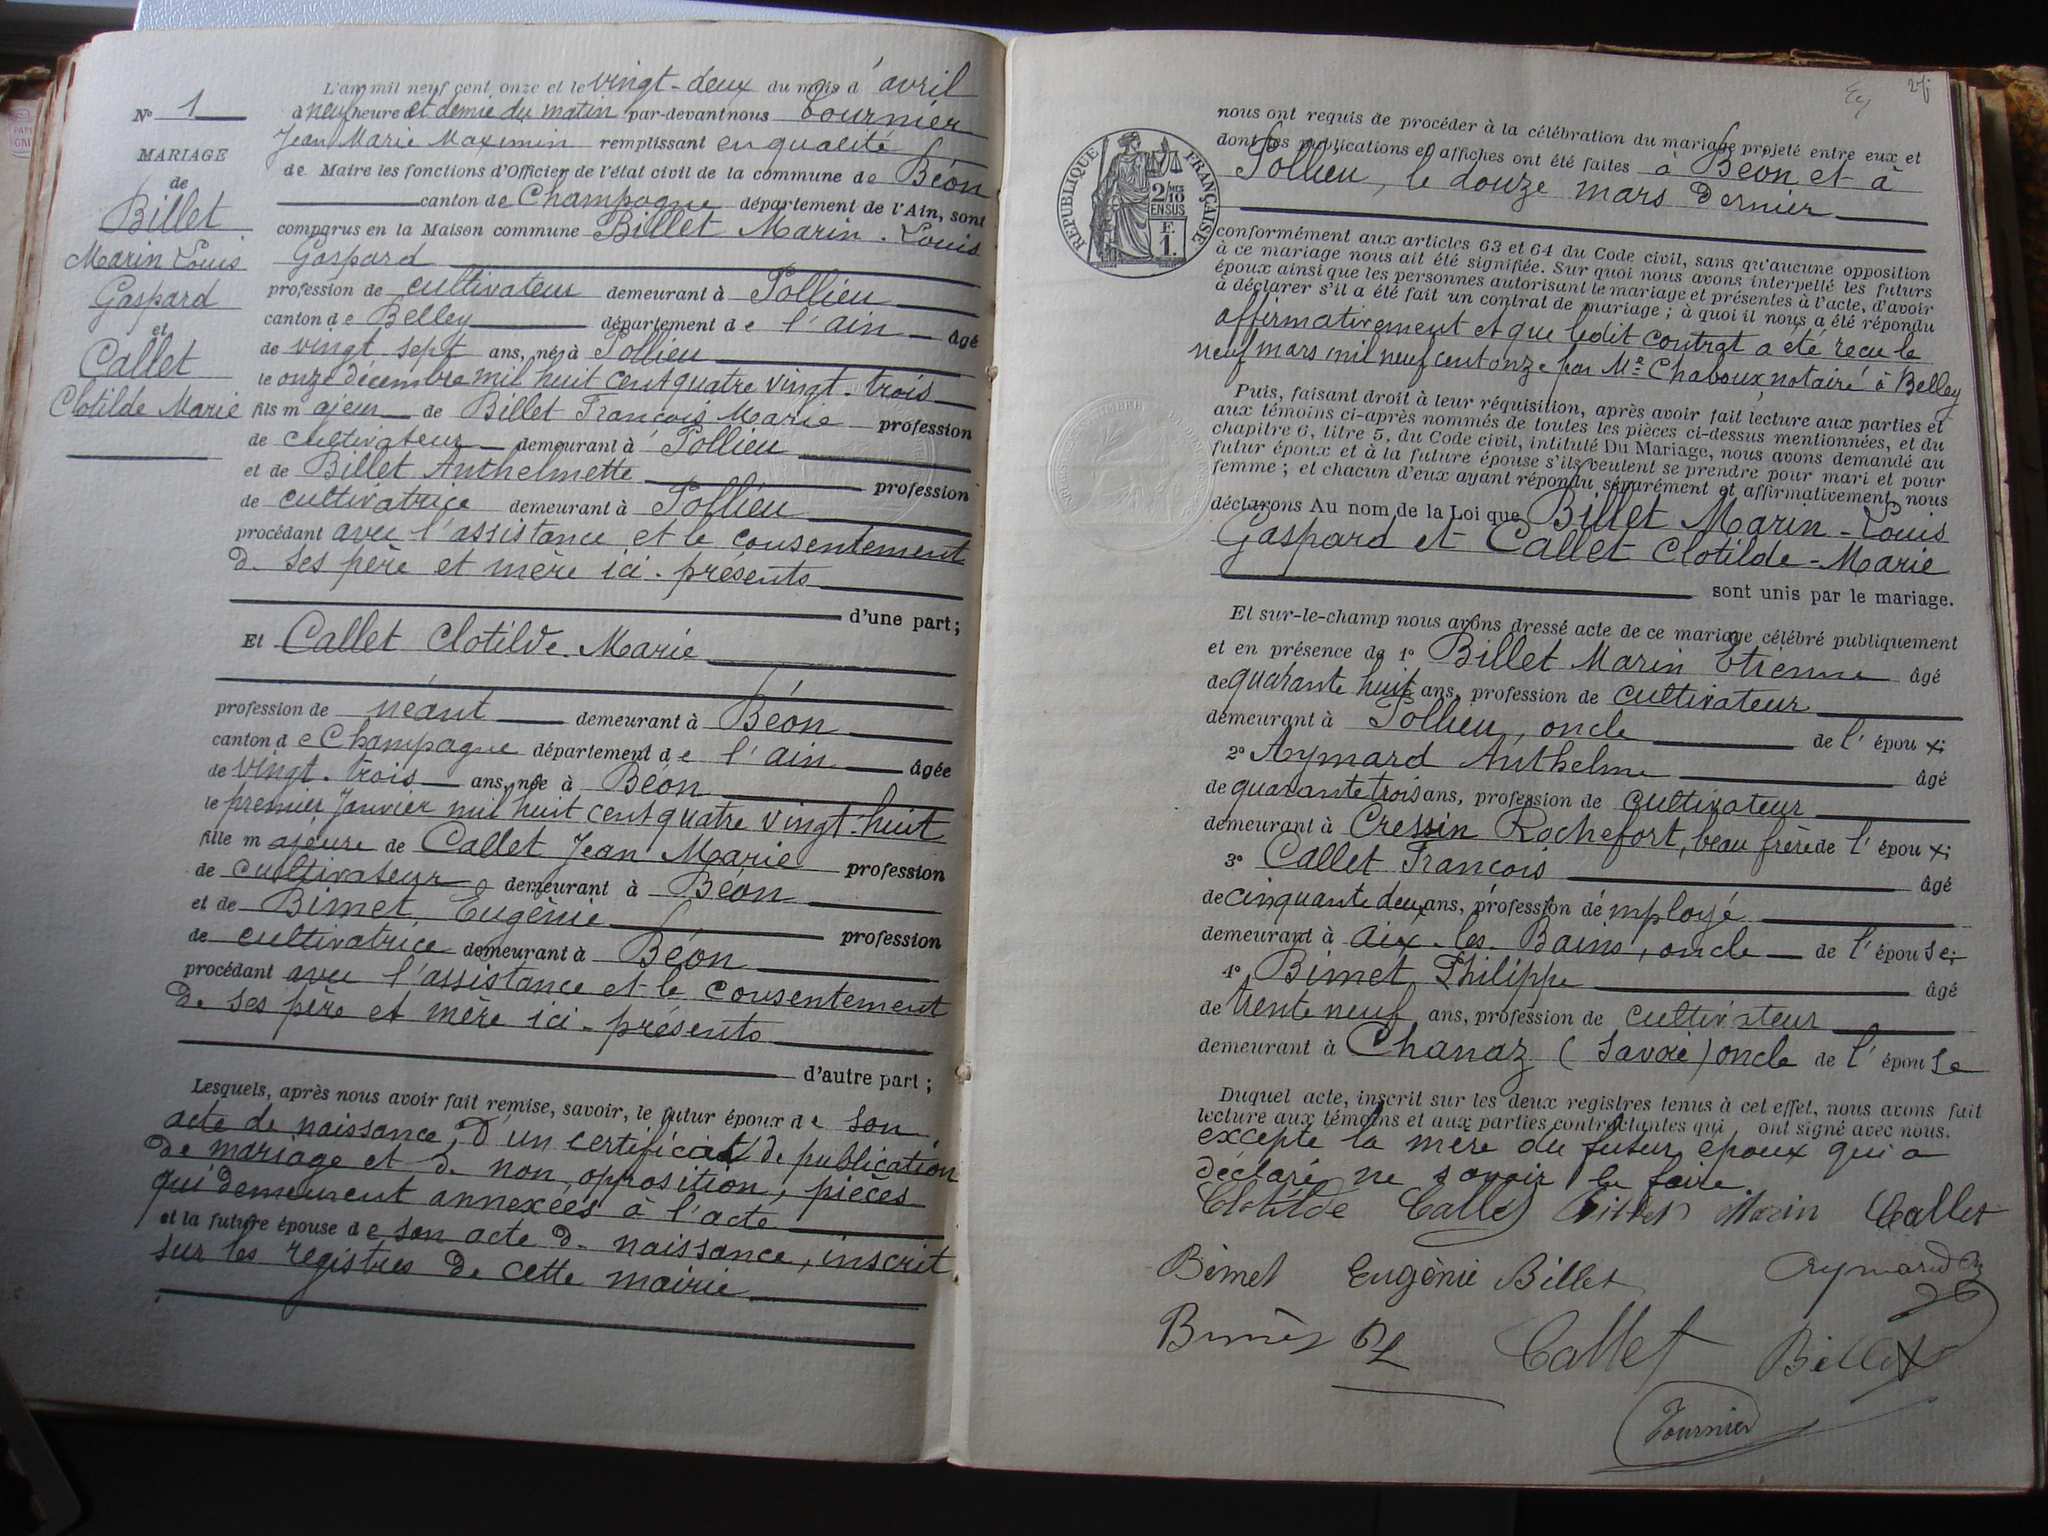 L'an mil neuf cent onze et le vingt-deux du mois d'avril
N° 1
à neuf heure et demie du matin par-devant nous Tournier
Jean Marie Maximin remplissant en qualité
de Maire les fonctions d'Officier de l'état civil de la commune de Béon
canton de Champagne département de l'Ain, sont
comparus en la Maison commune Billet Marin-Louis
Gaspard
profession de cultivateur demeurant à Pollieu
canton de Belley département de l'ain âgé
de vingt sept ans, né à Pollieu
le onze décembre mil huit cent quatre vingt-trois
fils majeur de Billet François Marie profession
de cultivateur demeurant à Pollieu
et de Billet Anthelmette profession
de cultivatrice demeurant à Pollieu
procédant avec l'assistance et le consentement
de ses père et mère ici-présents
d'une part;
MARIAGE
de
Billet
Marin Louis
Gaspard
et
Callet
Clotilde Marie
Et Callet Clotilde Marie
profession de néant demeurant à Béon
canton de Champagne département de l'ain âgée
de vingt-trois ans, née à Béon
le premier Janvier mil huit cent quatre vingt-huit
fille majeure de Callet Jean Marie profession
de cultivateur demeurant à Béon
et de Bimet Eugènie profession
de cultivatrice demeurant à Béon
procédant avec l'assistance et le consentement
de ses père et mère ici-présents
d'autre part;
Lesquels, après nous avoir fait remise, savoir, le futur époux de son
acte de naissance, d'un certificat de publication
de mariage et de non opposition, pièces
qui demeurent annexées à l'acte
et la future épouse de son acte de naissance, inscrit
sur les registres de cette mairie
nous ont requis de procéder à la célébration du mariage projeté entre eux et
dont les publications et affiches ont été faites à Béon et à
Pollieu, le douze mars dernier
RÉPUBLIQUE FRANÇAISE
2/10
EN SUS
F.
1.
conformément aux articles 63 et 64 du Code civil, sans qu'aucune opposition
à ce mariage nous ait été signifiée. Sur quoi nous avons interpellé les futurs
époux ainsi que les personnes autorisant le mariage et présentes à l'acte, d'avoir
à déclarer s'il a été fait un contrat de mariage; à quoi il nous a été répondu
affirmativement et que ledit contrat a été reçu le
neuf mars mil neuf cent onze par Me Chaboux notaire à Belley
Puis, faisant droit à leur réquisition, après avoir fait lecture aux parties et
aux témoins ci-après nommés de toutes les pièces ci-dessus mentionnées, et du
chapitre 6, titre 5, du Code civil, intitulé Du Mariage, nous avons demandé au
futur époux et à la future épouse s'ils veulent se prendre pour mari et pour
femme; et chacun d'eux ayant répondu séparément et affirmativement, nous
déclarons Au nom de la Loi que Billet Marin-Louis
Gaspard et Callet Clotilde-Marie
sont unis par le mariage.
Et sur-le-champ nous avons dressé acte de ce mariage célébré publiquement
et en présence de 1° Billet Marin Etienne âgé
de quarante huit ans, profession de cultivateur
demeurant à Pollieu, oncle de l'époux;
2° Aymard Anthelme âgé
de quarante trois ans, profession de cultivateur
demeurant à Cressin Rochefort, beau frère de l'époux;
3° Callet François âgé
de cinquante deux ans, profession d'employé
demeurant à Aix-les-Bains, oncle de l'épouse;
4° Bimet Philippe âgé
de trente neuf ans, profession de cultivateur
demeurant à Chanaz (Savoie) oncle de l'épouse
Duquel acte, inscrit sur les deux registres tenus à cet effet, nous avons fait
lecture aux témoins et aux parties contractantes qui ont signé avec nous.
excepté la mère du futur époux qui a
déclaré ne savoir le faire.
Clotilde Callet Billet Marin Callet
Bimet Eugènie Billet Aymard
Callet Billet
Tournier